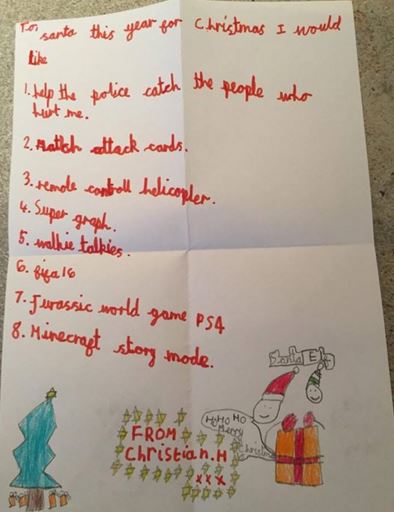 To, santa this year for Christmas I would
like
1. help the police catch the people who
hurt me.
2. Match attack cards.
3. remole controll helicopler.
4. Super graph.
5. walkie talkies.
6. fifa 16
7. Jurassic world game PS4
8. Minecraft story mode.
Santa
HoHoHo
Merry
Christmas
FROM
Christian.H
xxx